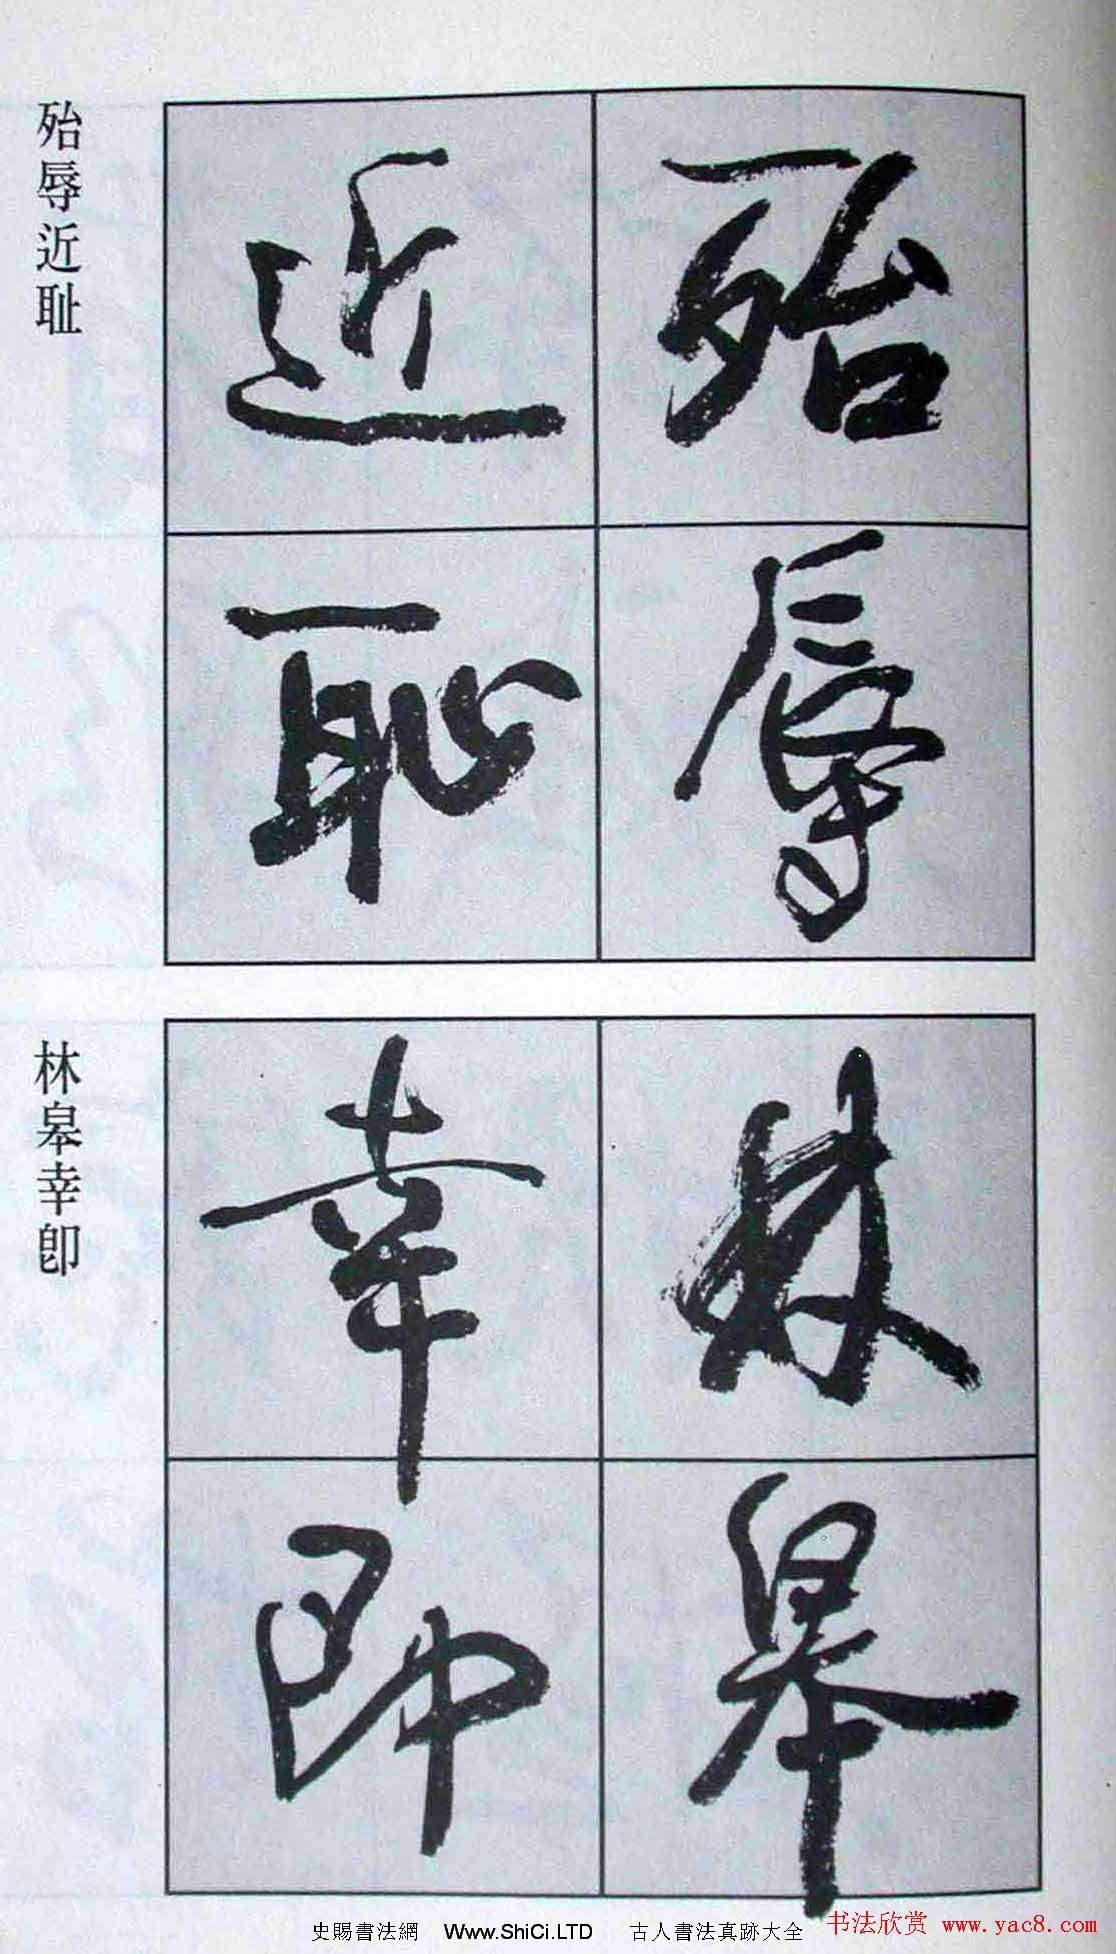 殆辱近耻
殆辱
近恥
林皋幸即
林皋
幸即
史賜書法網 Www.ShiCi.LTD 古人書法真跡大全
书法欣赏 www.yac8.com